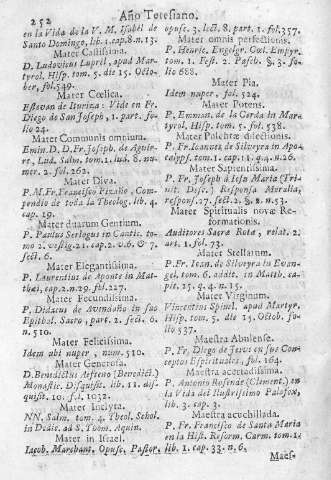 252
Año Teresiano.
en la Vida de la V. M. Isabèl de
Santo Domingo, lib. 1. cap. 8. n. 13.
Mater Castissima.
D. Ludovicus Lupril, apud Mar-
tyrol. Hisp. tom. 5. die 15. Octo-
ber, fol. 549.
Mater Cœlica.
Estevan de Iturica: Vide en Fr.
Diego de San Joseph, 1. part. fo-
lio 24.
Mater Communis omnium.
Emin. D. D. Fr. Joseph. de Aguir-
re, Lud. Salm. tom. 1. lud. 8. nu-
mer. 2. fol. 262.
Mater Diva.
P. M. Fr. Francisco Picaño, Com-
pendio de toda la Theolog. lib. 4.
cap. 19.
Mater duarum Gentium.
P. Paulus Serlogus in Cantic. to-
mo 2. vestig. 21. cap. 2. v. 6. & 7.
sect. 6.
Mater Elegantissima.
P. Laurentius de Aponte in Mat-
thæi, cap. 2. n. 29. fol. 227.
Mater Fecundissima.
P. Didacus de Avendaño in suo
Epithal. Sacro, part. 2. sect. 6.
n. 510.
Mater Felicissima.
Idem ubi nuper, num. 510.
Mater Generosa.
D. Benedictus Aefteno (Benedict.)
Monastic. Disquisit. lib. 11. dis-
quisit. 10. fol. 1032.
Mater Inclyta.
NN. Salm. tom. 4. Theol. Schol.
in Dedic. ad S. Thom. Aquin.
Mater in Israel.
Iacob. Marchant. Opusc. Pastor.
opusc. 3. lect. 8. part. 1. fol. 357.
Mater omnis perfectionis.
P. Henric. Engelgr. Cœl. Empyr.
tom. 1. Fest. 2. Pasch. §. 3. fo-
lio 688.
Mater Pia.
Idem nuper, fol. 524.
Mater Potens.
P. Emman. de la Cerda in Mar-
tyrol. Hisp. tom. 5. fol. 538.
Mater Pulchræ dilectionis.
P. Fr. Ioannes de Silveyra in Apo-
calyps. tom. 1. cap. 11. q. 4. n. 26.
Mater Sapientissima.
P. Fr. Joseph à Jesu Maria (Tri-
nit. Disc.) Responsa Moralia,
respons. 27. sect. 2. §. 2. n. 53.
Mater Spiritualis novæ Re-
formationis.
Auditores Sacræ Rotæ, relat. 2.
art. 1. fol. 73.
Mater Stellarum.
P. Fr. Ioan. de Silveyra in Evan-
gel. tom. 6. addit. in Matth. ca-
pit. 25. q. 4. n. 15.
Mater Virginum.
Vincentius Spinel. apud Martyr.
Hisp. tom. 5. die 15. Octob. fo-
lio 537.
Maestra Abulense.
P. Fr. Diego de Jesus en sus Con-
ceptos Espirituales, fol. 164.
Maestra acertadissima.
P. Antonio Rosende (Clement.) en
la Vida del Ilustrissimo Palafox,
lib. 3. cap. 3.
Maestra acuchillada.
P. Fr. Francisco de Santa Maria
en la Hist. Reform. Carm. tom. 1.
lib. 1. cap. 33. n. 6.
Maes-